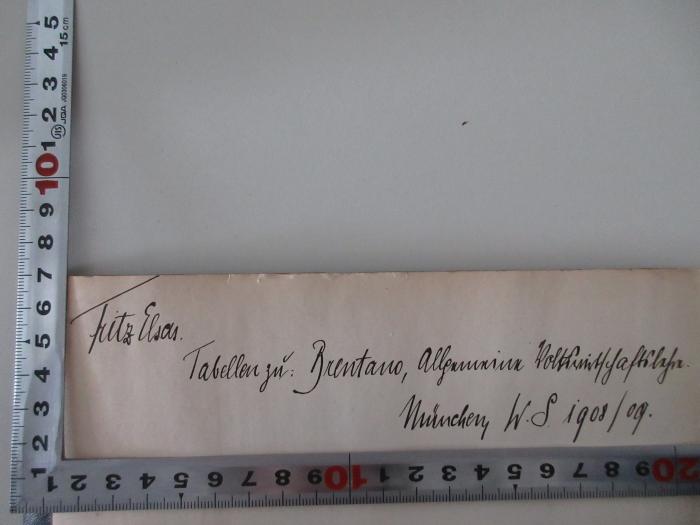 Fritz Elsas.
Tabellen zu: Brentano, Allgemeine Volkswirtschaftslehre.
München, W. S. 1908/09.
5
15 cm
4
3
2
1
10
9
8
7
6
5
4
3
2
1
JIS
JQA
1 2 3 4 5 6 7 8 9 10 1 2 3 4 5 6 7 8 9 20